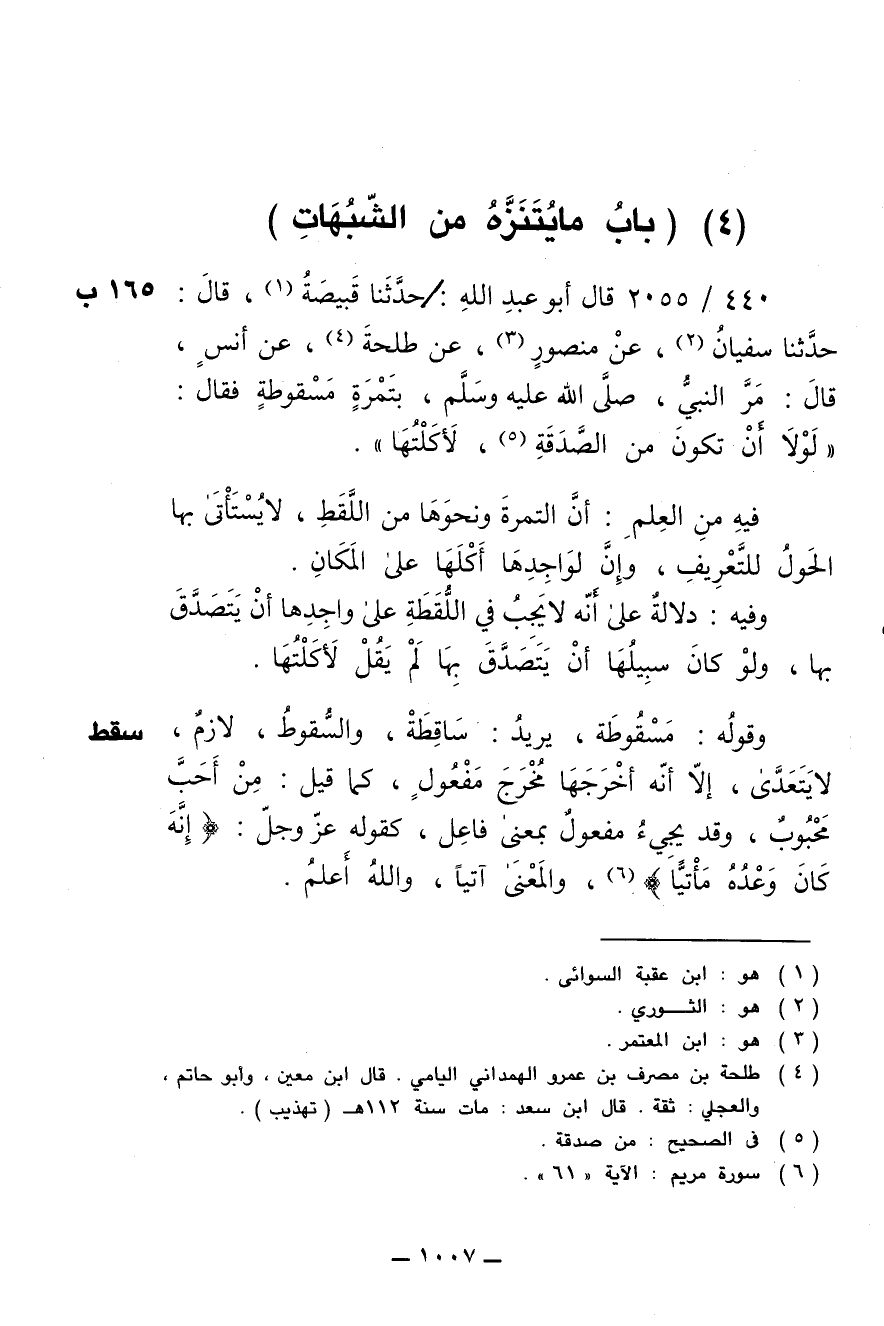 (٤) ( بابُ مايُتَنَزَّهُ من الشّبُهَاتِ )
٤٤٠ / ٢٠٥٥ قال أبو عبدِ اللهِ :/حدَّثَنا قَبِيصَةُ (١) ، قالَ : ١٦٥ ب
حدَّثنا سفيانُ (٢) ، عنْ منصورٍ (٣) ، عن طلحةَ (٤) ، عن أنسٍ ،
قالَ : مَرَّ النبيُّ ، صلَّى الله عليه وسَلَّم ، بتَمْرَةٍ مَسْقوطةٍ فقال :
« لَوْلَا أَنْ تكونَ من الصَّدَقَةِ (٥) ، لَأكَلْتُهَا » .
فيهِ منِ العِلمِ : أنَّ التمرةَ ونحوَهَا من اللَّقَطِ ، لايُسْتَأْتَىٰ بها
الحَولُ للتَّعْرِيفِ ، وإنَّ لوَاجِدِهَا أَكْلَهَا علىٰ المَكَانِ .
وفيه : دلالةٌ علىٰ أَنّه لايَجِبُ في اللُّقَطَةِ علىٰ واجِدها أنْ يَتَصَدَّقَ
بها ، ولوْ كانَ سبيلُهَا أنْ يَتَصَدَّقَ بِهَا لَمْ يَقُلْ لَأكَلْتُهَا .
وقولُه : مَسْقُوطَة ، يريدُ : سَاقِطَةْ ، والسُّقوطُ ، لازمٌ ، سقط
لايَتَعَدَّىٰ ، إلاّ أنّه أخْرَجَهَا مُخْرَجَ مَفْعُولٍ ، كما قيل : مِنْ أَحَبَّ
مَحْبُوبٌ ، وقد يجيءُ مفعولٌ بمعنىٰ فاعِل ، كقوله عزّ وجلّ : ﴿ إِنَّهَ
كَانَ وَعْدُهُ مَأْتيًّا ﴾ (٦) ، والمَعْنَىٰ آتياً ، واللهُ أَعلمُ .
(١) هو : ابن عقبة السوائى .
(٢) هو : الثـــوري .
(٣) هو : ابن المعتمر .
(٤) طلحة بن مصرف بن عمرو الهمداني اليامي . قال ابن معين ، وأبو حاتم ،
والعجلي : ثقة . قال ابن سعد : مات سنة ١١٢هـ ( تهذيب ) .
(٥) فى الصحيح : من صدقة .
(٦) سورة مريم : الآية « ٦١ » .
– ١٠٠٧ –